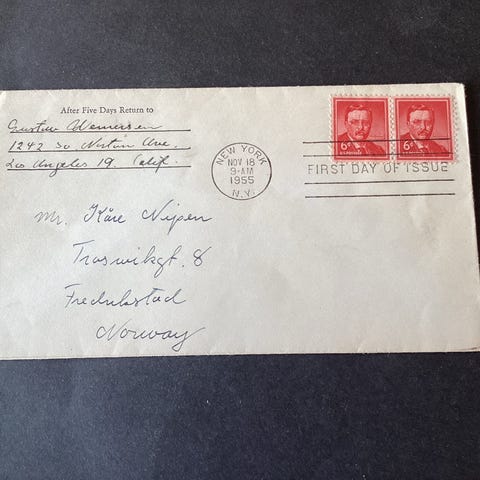 After Five Days Return to
Gustav
1242 So Norton Ave.
Los Angeles 19. Calif.
NEW YORK
NOV 18
9-AM
1955
N.Y.
FIRST DAY OF ISSUE
6¢
6¢
Mr. Kåre Nipen
8
Fredrikstad
Norway